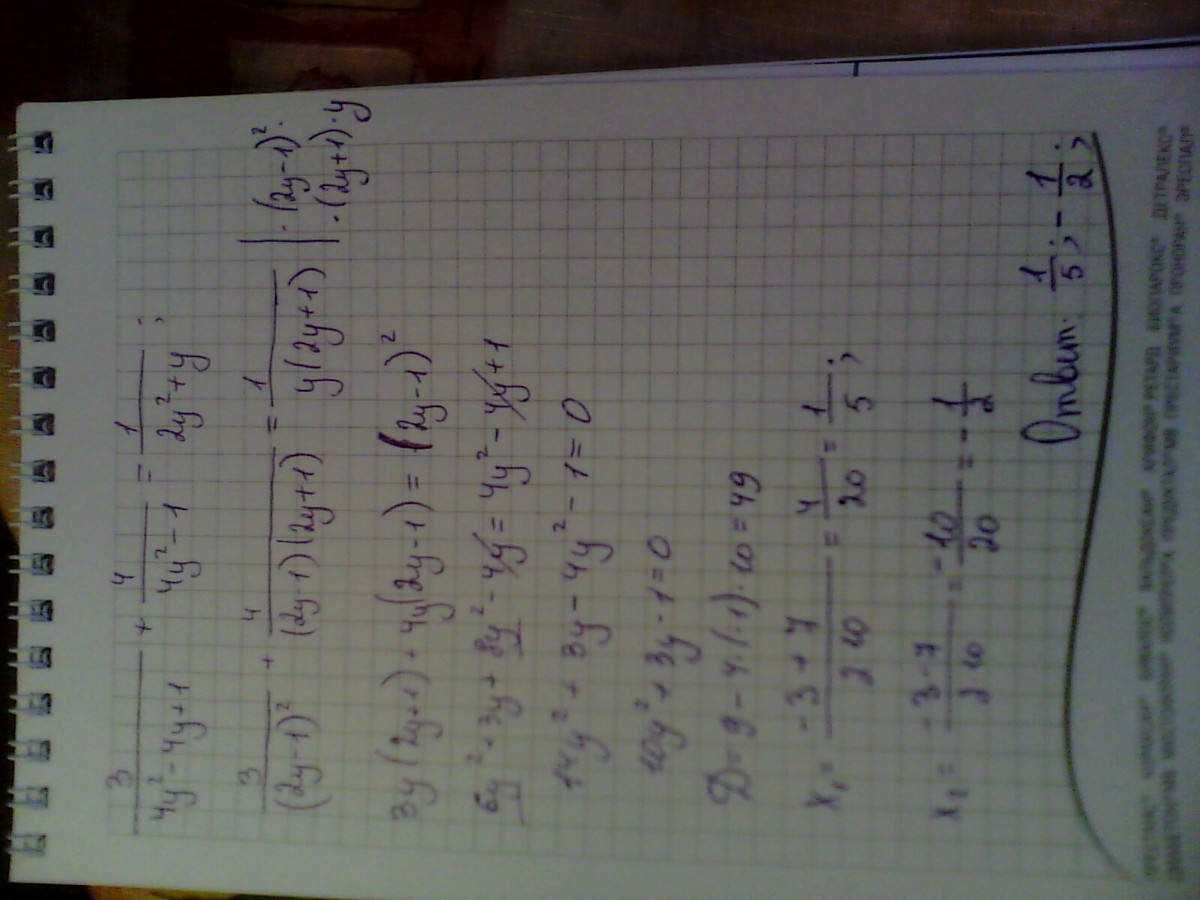 3/(4y²-4y+1) + 4/(4y²-1) = 1/(2y²+y) ;
3/(2y-1)² + 4/((2y-1)(2y+1)) = 1/(y(2y+1)) | ·(2y-1)²· ·(2y+1)·y
3y(2y+1) + 4y(2y-1) = (2y-1)²
6y² + 3y + 8y² - 4y = 4y² - 4y + 1
14y² + 3y - 4y² - 1 = 0
10y² + 3y - 1 = 0
D = 9 - 4·(-1)·10 = 49
x₁ = (-3+7)/(2·10) = 4/20 = 1/5 ;
x₂ = (-3-7)/(2·10) = -10/20 = -1/2
Ответ: 1/5 ; -1/2 ;